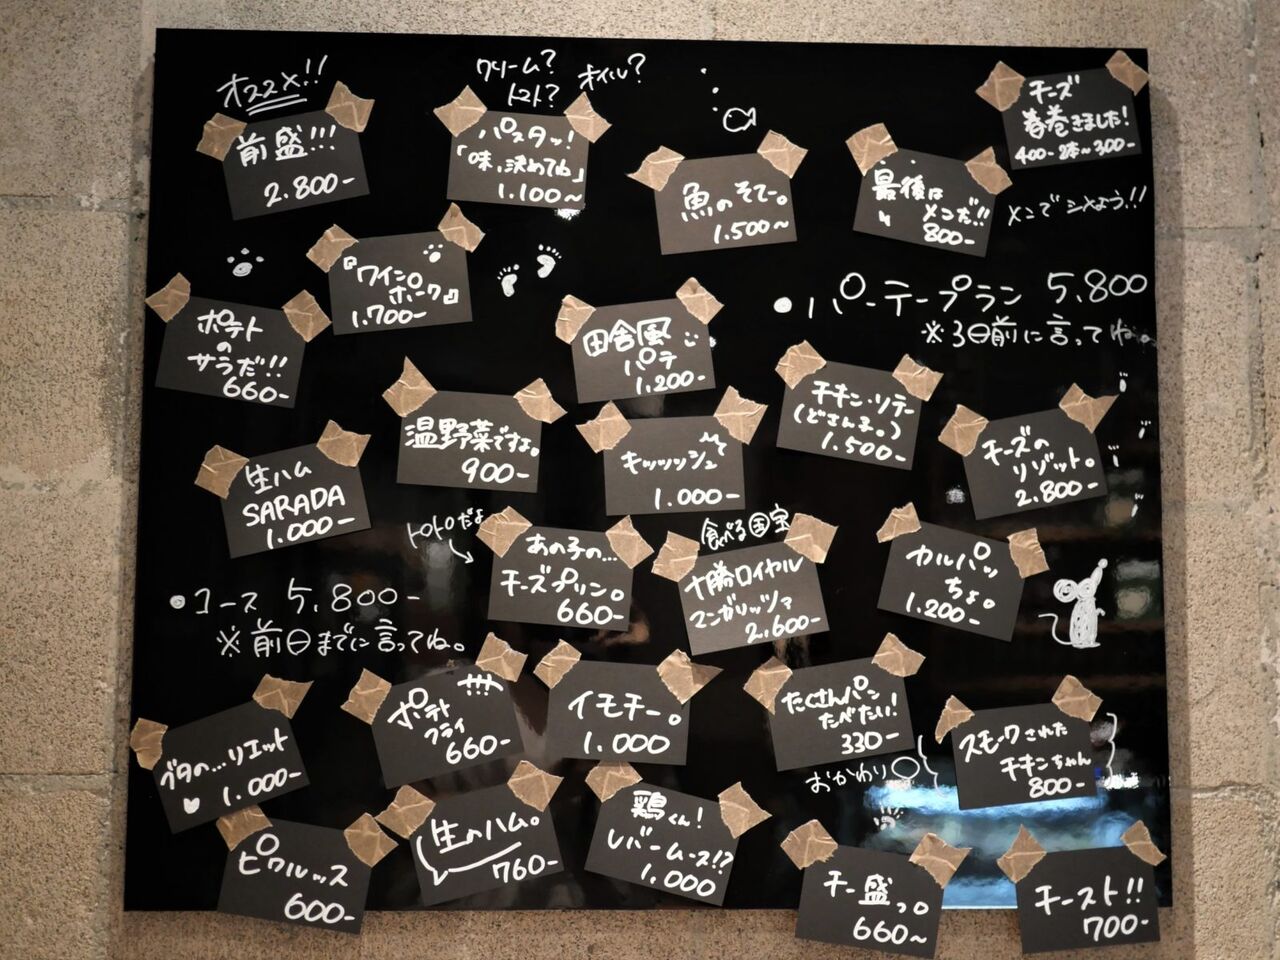 オススメ!!
前盛!!!
2.800-
クリーム?
トマト?
オイル?
パスタッ!
「味、決めてね」
1.100~
魚のそてー。
1.500~
最後は
メンだ!!
800-
チーズ
春巻きました!
400-2本~300-
メンでシメよう!!
『ワインポーク』
1.700-
ポテト
の
サラだ!!
660-
田舎風
パテ
1.200-
●パーテープラン 5.800
※3日前に言ってね。
温野菜ですよ。
900-
キッッッシュ
1.000-
チキン・ソテー
(どさんこ。)
1.500-
チーズの
リゾット。
2.800-
生ハム
SARADA
1.000-
トロトロだよ
あの子の…
チーズプリン。
660-
食べる国宝
十勝ロイヤル
マンガリッツァ
2.600-
カルパッ
ちょ。
1.200-
●コース 5.800-
※前日までに言ってね。
ブタの…リエット
1.000-
ポテト
フライ
!!!
660-
イモチー。
1.000
たくさんパン
たべたい!
330-
おかわり○
スモークされた
チキンちゃん
800-
ピクルッス
600-
生のハム。
760-
鶏くん!
レバームース!?
1.000
チー盛っ。
660~
チースト!!
700-